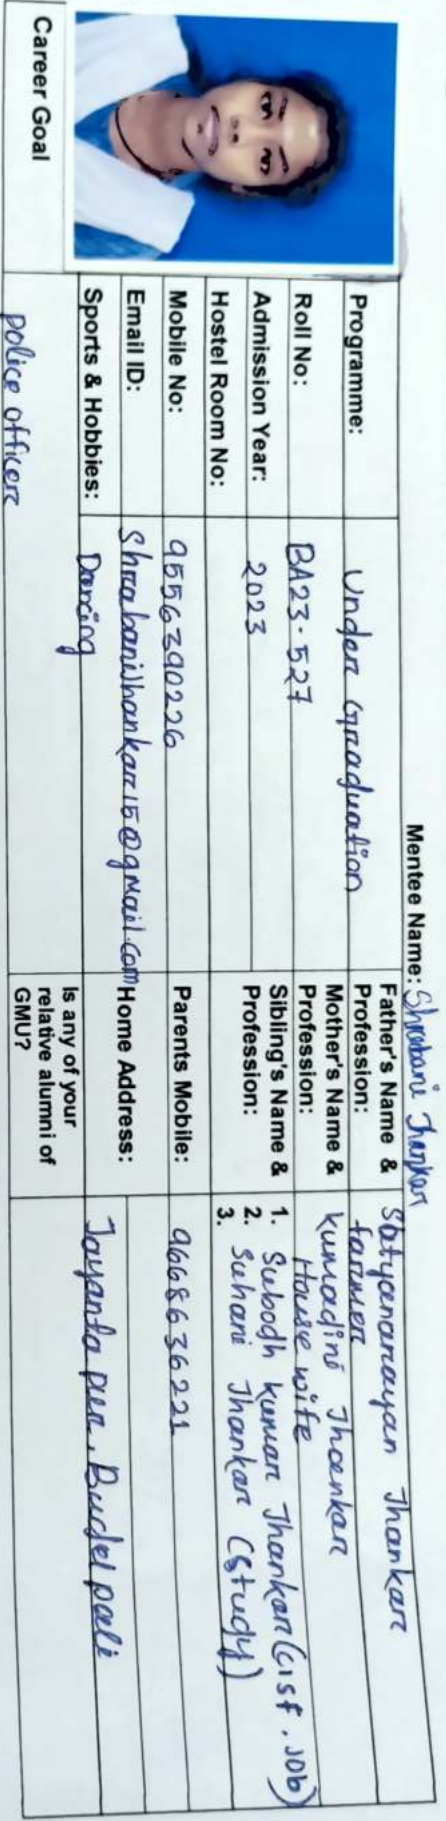 Mentee Name: Shrabani Jhankar
Programme: Under Graduation
Father's Name & Profession: Satyanarayan Jhankar
farmer
Roll No: BA23-527
Mother's Name & Profession: kumadini Jhankar
House wife
Admission Year: 2023
Sibling's Name & Profession:
1. Subodh kumar Jhankar (cisf. job)
2. Suhani Jhankar (study)
3.
Hostel Room No:
Mobile No: 9556390226
Parents Mobile: 9668636221
Email ID: Shrabanijhankar15@gmail.com
Home Address: Jayanta pur, Burdel pali
Sports & Hobbies: Dancing
Is any of your relative alumni of GMU?
Career Goal police officer